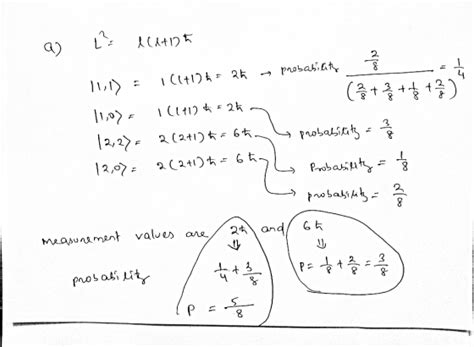 a) L² = l(l+1)ħ
|1,1⟩ = 1(1+1)ħ = 2ħ → probability (2/8)/(2/8 + 3/8 + 1/8 + 2/8) = 1/4
|1,0⟩ = 1(1+1)ħ = 2ħ → probability = 3/8
|2,2⟩ = 2(2+1)ħ = 6ħ → Probability = 1/8
|2,0⟩ = 2(2+1)ħ = 6ħ → probability = 2/8
measurement values are 2ħ and 6ħ
⇓ ⇓
probability 1/4 + 3/8 P = 1/8 + 2/8 = 3/8
P = 5/8